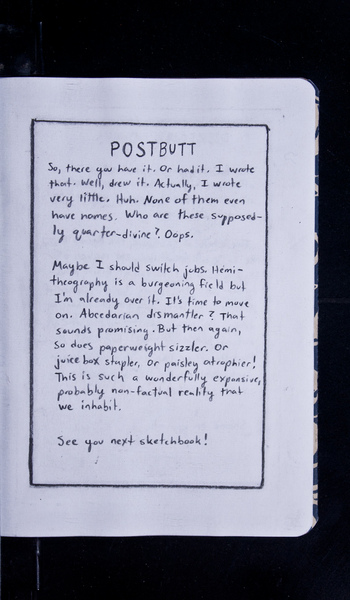 POSTBUTT
So, there you have it. Or had it. I wrote
that. Well, drew it. Actually, I wrote
very little. Huh. None of them even
have names. Who are these supposed-
ly quarter-divine? Oops.
Maybe I should switch jobs. Hemi-
theography is a burgeoning field but
I'm already over it. It's time to move
on. Abecedarian dismantler? That
sounds promising. But then again,
so does paperweight sizzler. Or
juice box stapler, or paisley atrophier!
This is such a wonderfully expansive,
probably non-factual reality that
we inhabit.
See you next sketchbook!